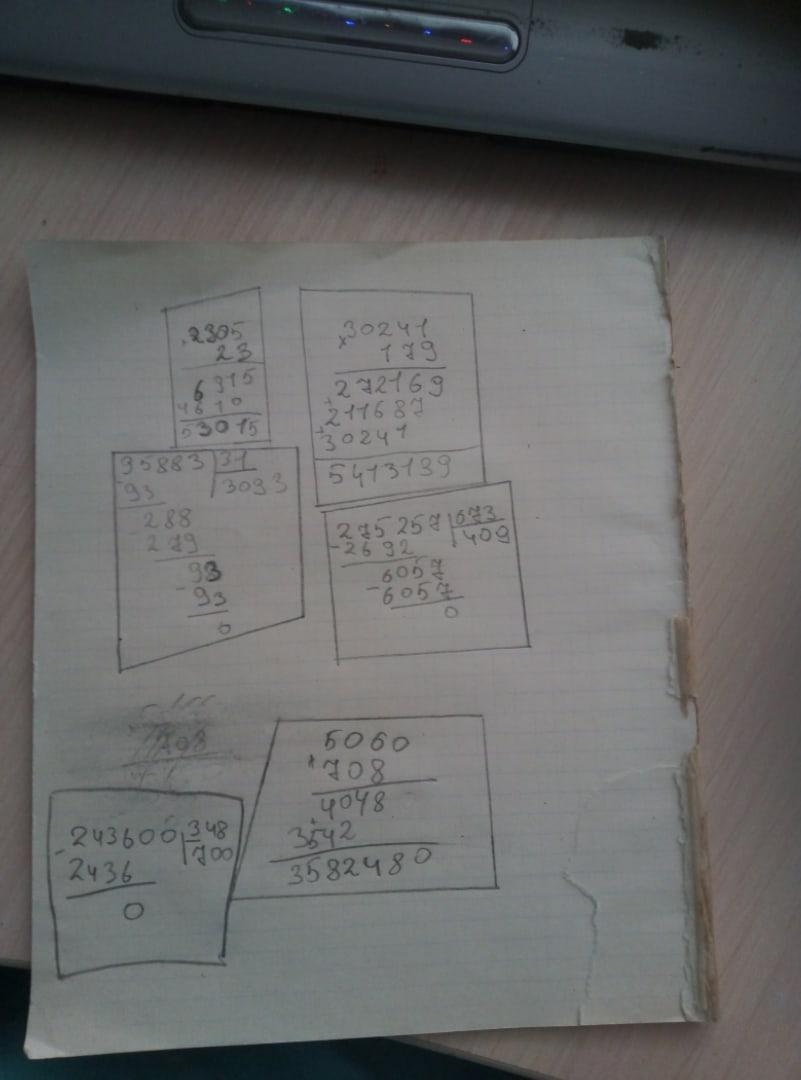 2305
23
6915
4610
53015
× 30241
179
272169
+ 211687
+ 30241
5413139
95883 | 31
- 93 | 3093
288
- 279
93
- 93
0
275257 | 673
- 2692 | 409
6057
- 6057
0
708
5060
× 708
4048
+ 3542
3582480
243600 | 348
- 2436 | 700
0